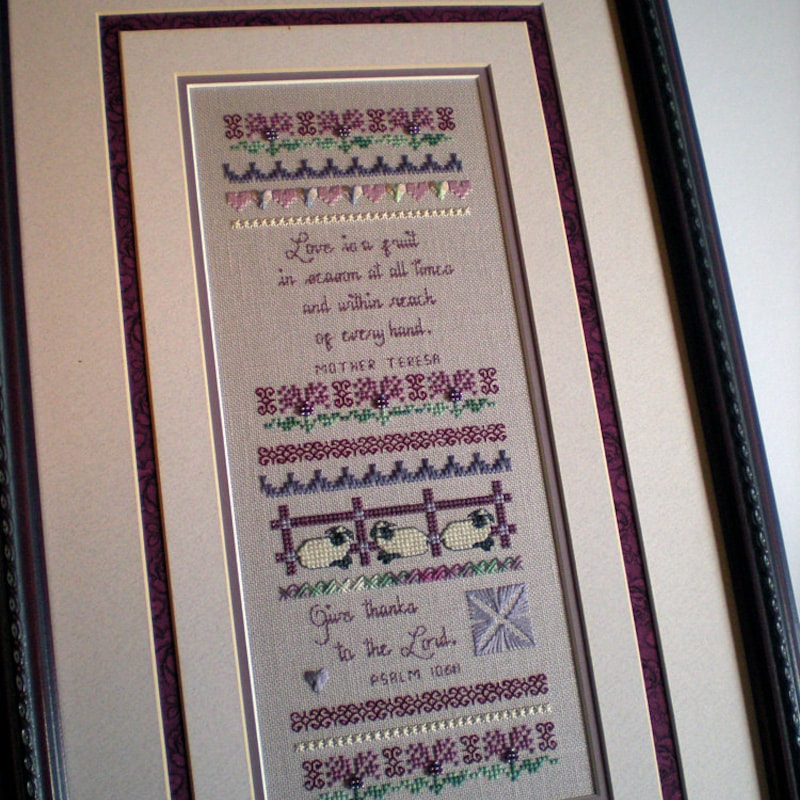 Love is a fruit
in season at all times
and within reach
of every hand.
MOTHER TERESA
Give thanks
to the Lord.
PSALM 106:1